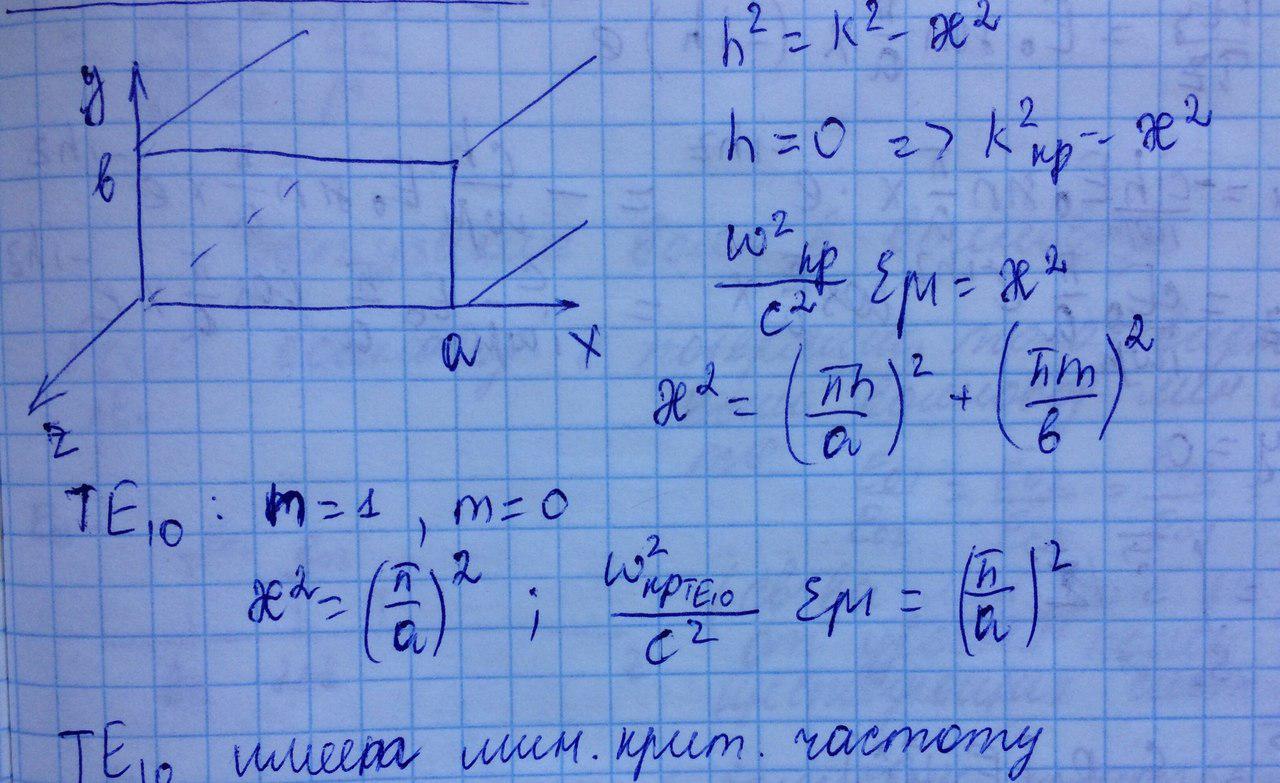 y
в
a
x
z
h² = k² - æ²
h = 0 => k²кр - æ²
ω²кр / c² εμ = æ²
æ² = (πn / a)² + (πm / в)²
TE₁₀ : n = 1 , m = 0
æ² = (π / a)² ; ω²кр TE₁₀ / c² εμ = (π / a)²
TE₁₀ имеет мин. крит. частоту